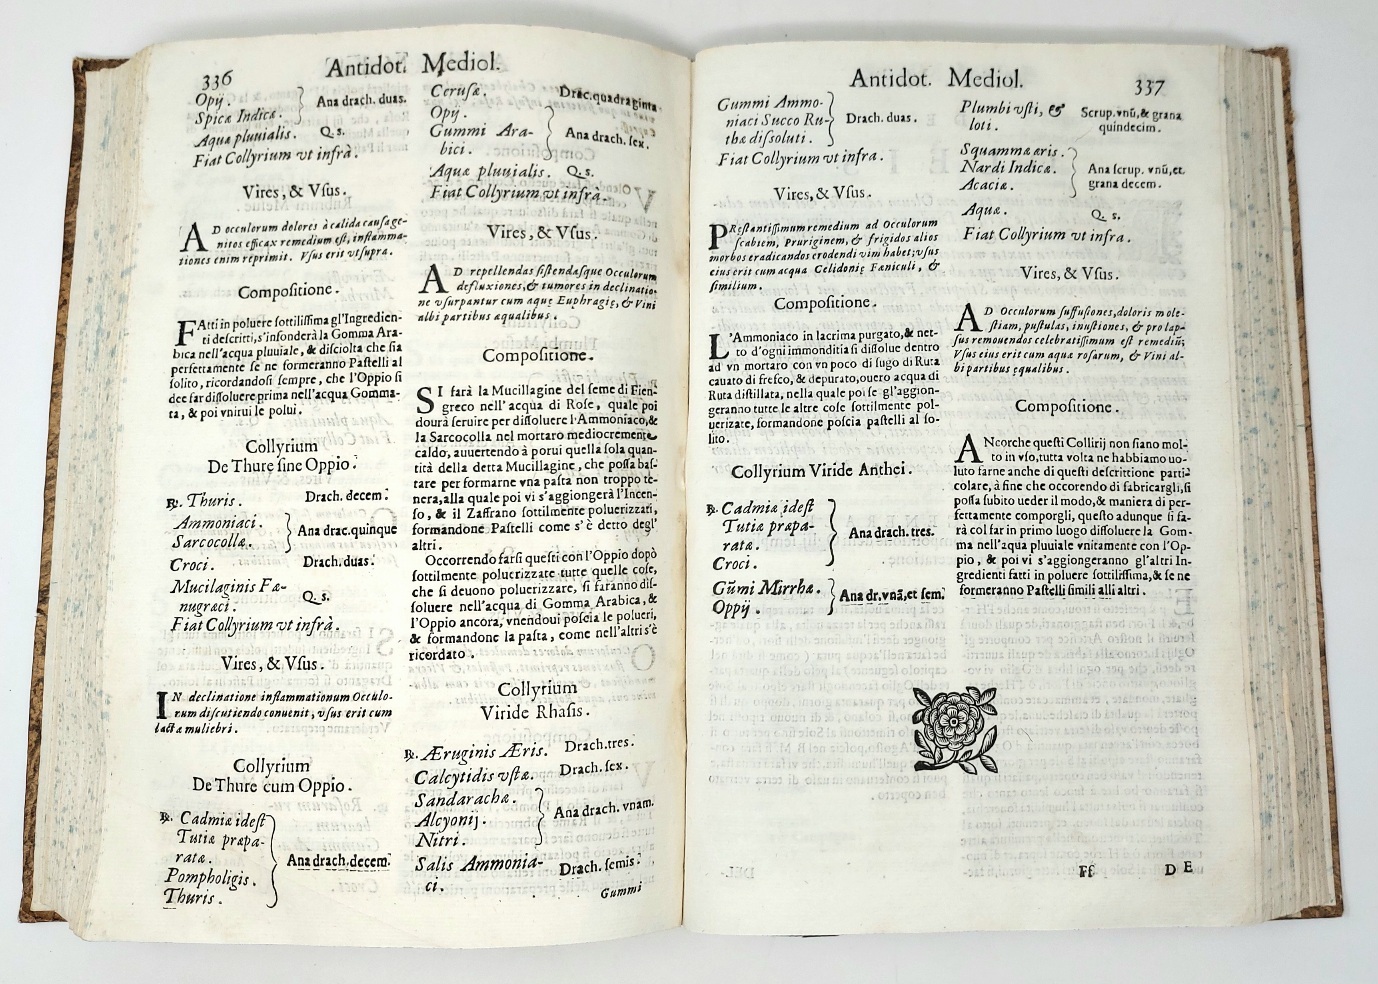 336
Antidot. Mediol.
Opij.
Spicæ Indicæ.
Ana drach. duas.
Aquæ pluuialis. Q. s.
Fiat Collyrium vt infrà.
Vires, & Vſus.
AD occulorum dolores à calida cauſa ge-
nitos efficax remedium eſt, inflamma-
tiones enim reprimit. Vſus erit vt ſupra.
Compoſitione.
FAtti in poluere ſottiliſſima gl'Ingredien-
ti deſcritti, s'infonderà la Gomma Ara-
bica nell'acqua pluuiale, & diſciolta che ſia
perfettamente ſe ne formeranno Paſtelli al
ſolito, ricordandoſi ſempre, che l'Oppio ſi
dee far diſſoluere prima nell'acqua Gomma-
ta, & poi vnirui le polui.
Collyrium
De Thure ſine Oppio.
℞. Thuris. Drach. decem.
Ammoniaci.
Sarcocollæ.
Ana drac. quinque
Croci. Drach. duas.
Mucilaginis Fæ-
nugræci. Q. s.
Fiat Collyrium vt infrà.
Vires, & Vſus.
IN declinatione inflammationum Occulo-
rum diſcutiendo conuenit, vſus erit cum
lacte muliebri.
Collyrium
De Thure cum Oppio.
℞. Cadmiæ ideſt
Tutiæ præpa-
ratæ.
Pompholigis.
Thuris.
Ana drach. decem.
Ceruſæ. Drac. quadraginta
Opij.
Gummi Ara-
bici.
Ana drach. ſex.
Aquæ pluuialis. Q. s.
Fiat Collyrium vt infrà.
Vires, & Vſus.
AD repellendas ſiſtendaſque Occulorum
defluxiones, & tumores in declinatio-
ne vſurpantur cum aquę Euphragię, & Vini
albi partibus æqualibus.
Compoſitione.
SI farà la Mucillagine del ſeme di Fien-
greco nell'acqua di Roſe, quale poi
dourà ſeruire per diſſoluere l'Ammoniaco, &
la Sarcocolla nel mortaro mediocremente
caldo, auuertendo à porui quella ſola quan-
tità della detta Mucillagine, che poſſa baſ-
tare per formarne vna paſta non troppo te-
nera, alla quale poi vi s'aggiongerà l'Incen-
ſo, & il Zaffrano ſottilmente poluerizzati,
formandone Paſtelli come s'è detto degl'
altri.
Occorrendo farſi queſti con l'Oppio dopò
ſottilmente poluerizzate tutte quelle coſe,
che ſi deuono poluerizzare, ſi faranno diſ-
ſoluere nell'acqua di Gomma Arabica, &
l'Oppio ancora, vnendoui poſcia le polueri,
& formandone la paſta, come nell'altri s'è
ricordato.
Collyrium
Viride Rhaſis.
℞. Æruginis Æris. Drach. tres.
Calcytidis vſtæ. Drach. ſex.
Sandarachæ.
Alcyonij.
Nitri.
Ana drach. vnam.
Salis Ammonia-
ci. Drach. ſemis.
Gummi
Antidot. Mediol.
337
Gummi Ammo-
niaci Succo Ru-
thæ diſſoluti.
Drach. duas.
Fiat Collyrium vt infra.
Vires, & Vſus.
PReſtantiſſimum remedium ad Occulorum
ſcabiem, Pruriginem, & frigidos alios
morbos eradicandos erodendi vim habet; vſus
eius erit cum acqua Celidonię Fæniculi, &
ſimilium.
Compoſitione.
L'Ammoniaco in lacrima purgato, & net-
to d'ogni immonditia ſi diſſolue dentro
ad vn mortaro con vn poco di ſugo di Ruta
cauato di freſco, & depurato, ouero acqua di
Ruta diſtillata, nella quale poi ſe gl'aggion-
geranno tutte le altre coſe ſottilmente pol-
uerizate, formandone poſcia paſtelli al ſo-
lito.
Collyrium Viride Anthei.
℞. Cadmiæ ideſt
Tutiæ præpa-
ratæ.
Croci.
Ana drach. tres.
Gūmi Mirrhæ.
Oppij.
Ana dr. vnā, et ſem.
Plumbi vſti, &
loti.
Scrup. vnū, & grana
quindecim.
Squammæ æris.
Nardi Indicæ.
Acaciæ.
Ana ſcrup. vnū, et
grana decem.
Aquæ. Q. s.
Fiat Collyrium vt infra.
Vires, & Vſus.
AD Occulorum ſuffuſiones, doloris mole-
ſtiam, puſtulas, inuſtiones, & prolap-
ſus remouendos celebratiſſimum eſt remediū;
Vſus eius erit cum aqua roſarum, & Vini al-
bi partibus ęqualibus.
Compoſitione.
ANcorche queſti Collirij non ſiano mol-
to in vſo, tutta volta ne habbiamo uo-
luto farne anche di queſti deſcrittione parti-
colare, à fine che occorendo di fabricargli, ſi
poſſa ſubito ueder il modo, & maniera di per-
fettamente comporgli, queſto adunque ſi fa-
rà col far in primo luogo diſſoluere la Gom-
ma nell'aqua pluuiale vnitamente con l'Op-
pio, & poi vi s'aggiongeranno gl'altri In-
gredienti fatti in poluere ſottiliſſima, & ſe ne
formeranno Paſtelli ſimili alli altri.
Ff
DE